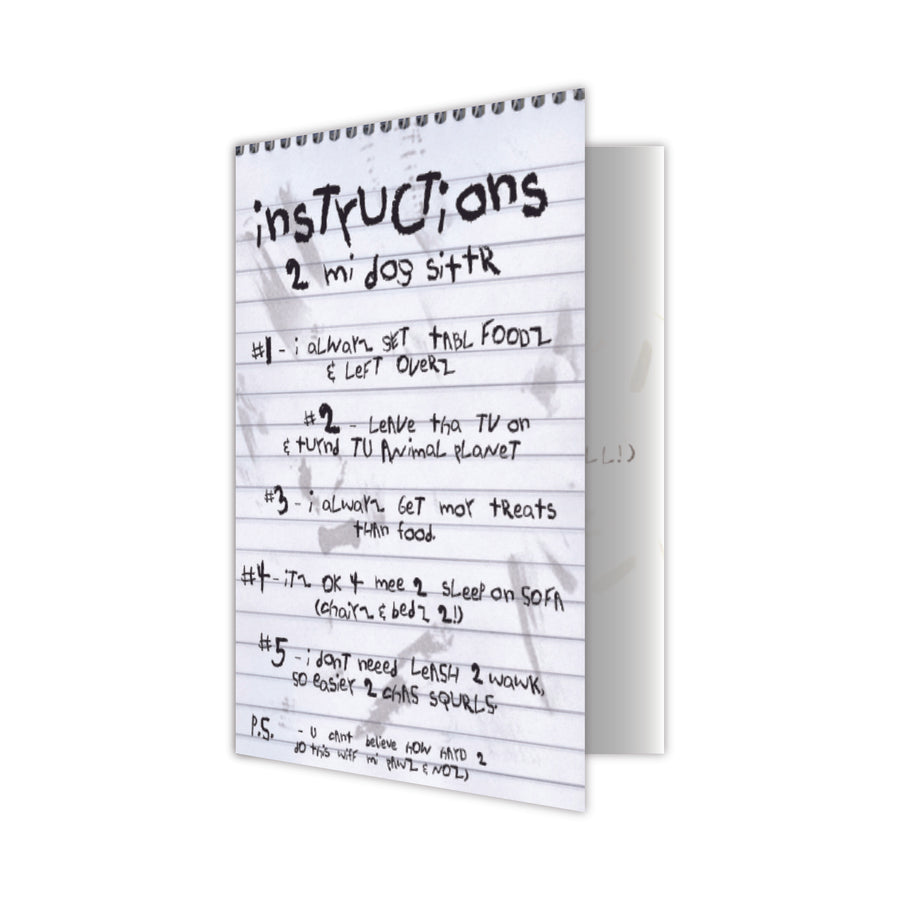 insTrUCTions
2 mi dog sittR
#1 - i aLwarz GET tABL FOODZ
& LeFT OVeRZ
#2 - LeAVe tha TV on
& turnd TU ANimaL pLaNeT
#3 - i aLwarz GeT mor tReats
tHAn food.
#4 - iTz OK 4 mee 2 SLeep on SOFA
(chairz & bedz 2!)
#5 - i donT neeed LeASH 2 wawK,
so easier 2 chAS SQURLS.
P.S. - U cAnt believe HOW HARD 2
do this wiff mi pAWZ & NOZ)
LL!)